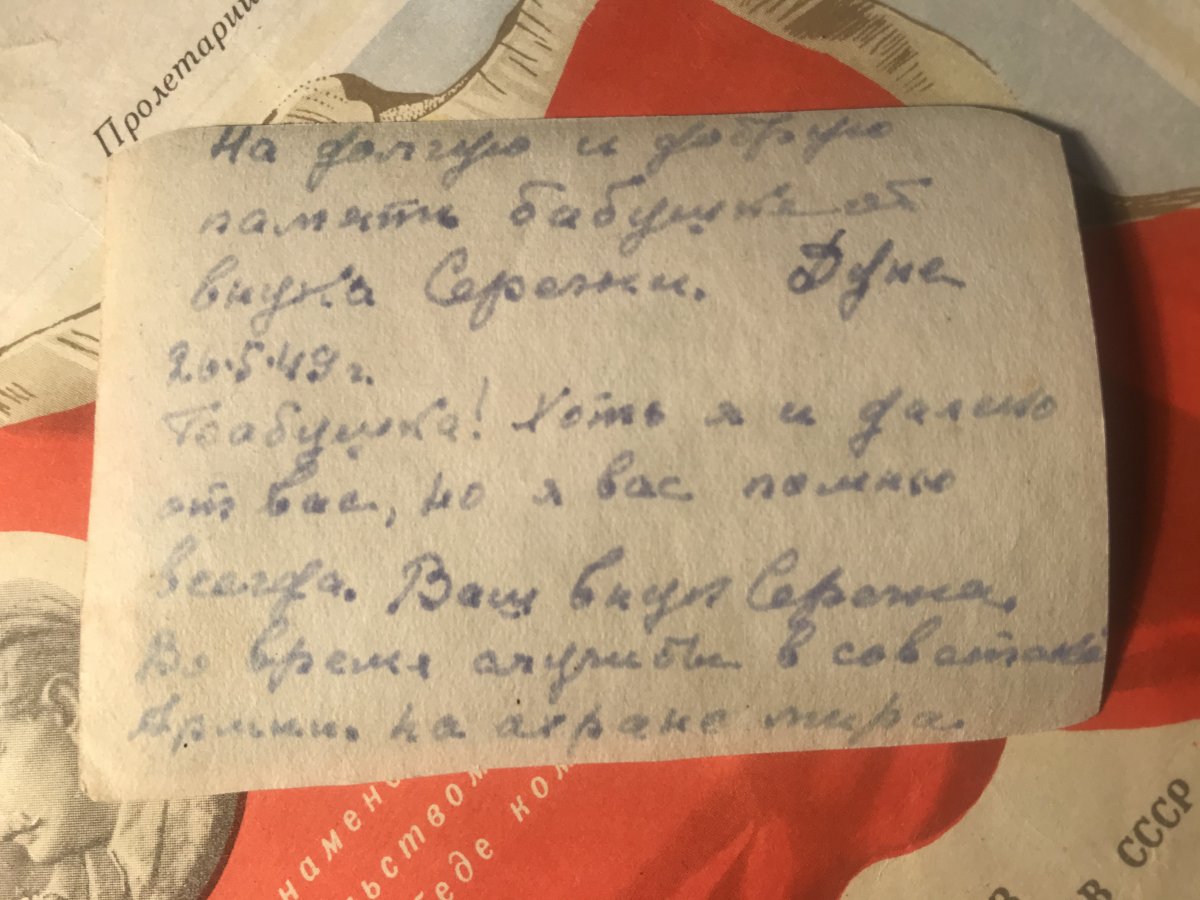 Пролетарии
На долгую и добрую
память бабушке от
внука Сережи. Дуне
26.5.49 г.
Бабушка! Хоть я и далеко
от вас, но я вас помню
всегда. Ваш внук Сережа.
Во время службы в советской
Армии. на охране мира.
наменем
льством
беде ком
В СССР